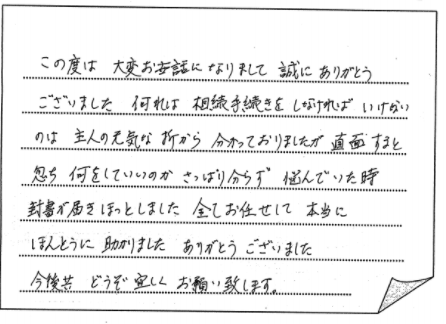 この度は 大変お世話になりまして 誠に ありがとう
ございました 何れは 相続手続きを しなければ いけない
のは 主人の元気な 折から 分かっておりましたが 直面 すると
忽ち 何をしていいのか さっぱり分らず 悩んでいた時
封書が届き ほっとしました 全てお任せして 本当に
ほんとうに 助かりました ありがとう ございました
今後共 どうぞ 宜しく お願い致します。